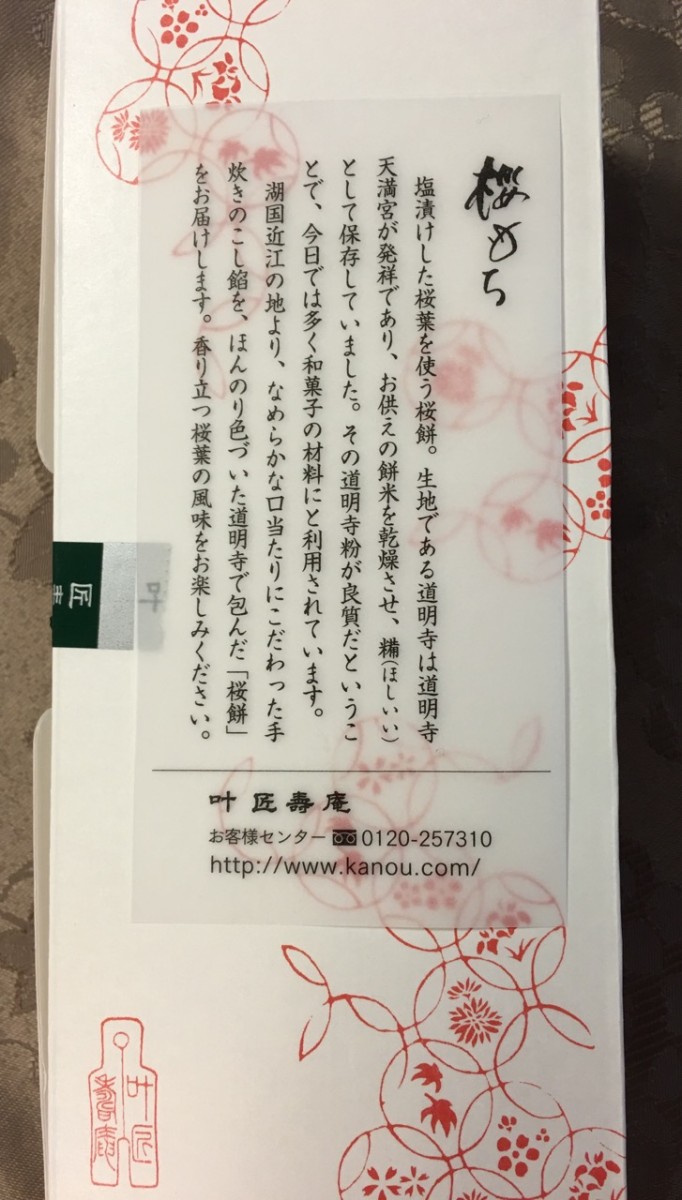 桜もち
塩漬けした桜葉を使う桜餅。生地である道明寺は道明寺
天満宮が発祥であり、お供えの餅米を乾燥させ、糒(ほしいい)
として保存していました。その道明寺粉が良質だというこ
とで、今日では多く和菓子の材料にと利用されています。
湖国近江の地より、なめらかな口当たりにこだわった手
炊きのこし餡を、ほんのり色づいた道明寺で包んだ「桜餅」
をお届けします。香り立つ桜葉の風味をお楽しみください。
叶 匠壽庵
お客様センター 0120-257310
http://www.kanou.com/
叶
匠
叶匠
壽庵